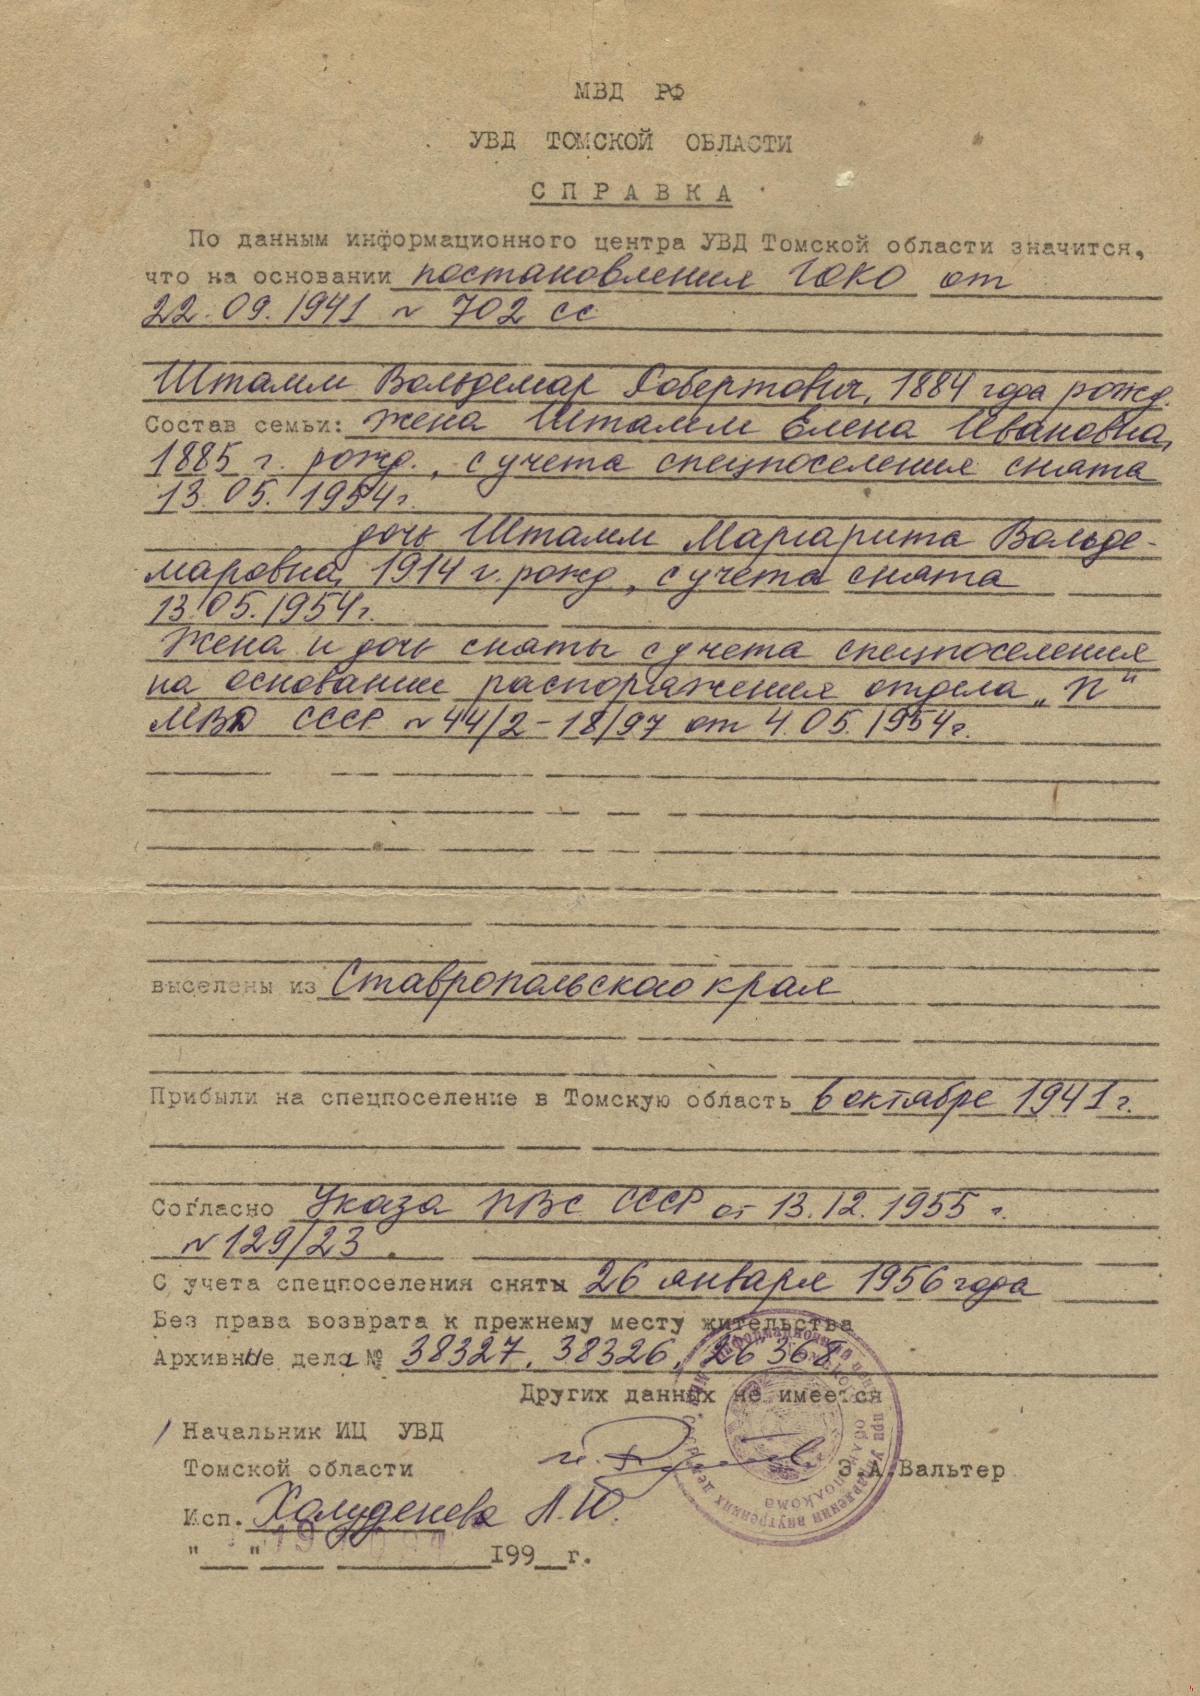 МВД РФ
УВД ТОМСКОЙ ОБЛАСТИ
СПРАВКА
По данным информационного центра УВД Томской области значится,
что на основании постановления ГОКО от
22.09.1941 № 702 сс
Штамм Вольдемар Робертович, 1884 года рожд.
Состав семьи: жена Штамм Елена Ивановна,
1885 г. рожд., с учета спецпоселения снята
13.05.1954г.
дочь Штамм Маргарита Вольде-
маровна, 1914 г. рожд., с учета снята
13.05.1954г.
Жена и дочь сняты с учета спецпоселения
на основании распоряжения отдела „П"
МВД СССР №44/2-18/97 от 4.05.1954г.
выселены из Ставропольского края
Прибыли на спецпоселение в Томскую область в октябре 1941г.
Согласно Указа ПВС СССР от 13.12.1955 г.
№129/23.
С учета спецпоселения сняты 26 января 1956 года
Без права возврата к прежнему месту жительства
Архивные дела № 38327, 38326, 26368
Других данных не имеется
Начальник ИЦ УВД
Томской области Э.А.Вальтер
Исп. А.Ю.
"__"______199__г.